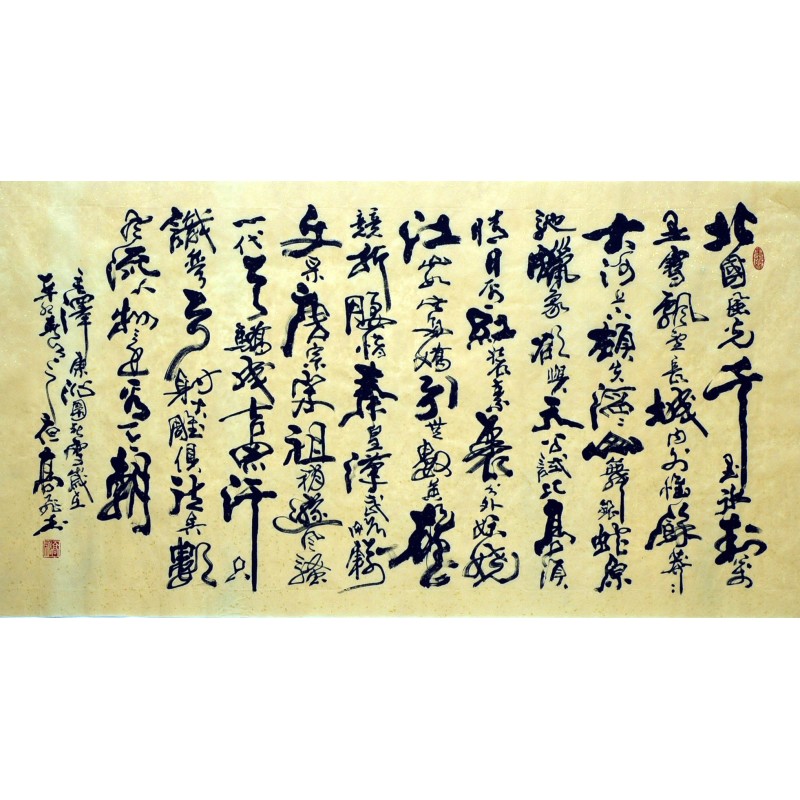 北國風光千里冰封萬
里雪飄望長城內外惟餘莽〻
大河上下頓失滔〻山舞銀蛇原
馳蠟象欲與天公試比高須
晴日看紅裝素裹分外妖嬈
江山如此多嬌引無數英雄
競折腰惜秦皇漢武略輸
文采唐宗宋祖稍遜風騷
一代天驕成吉思汗只
識彎弓射大雕俱往矣數
風流人物還看今朝
毛澤東沁園春雪歲在
高飛書